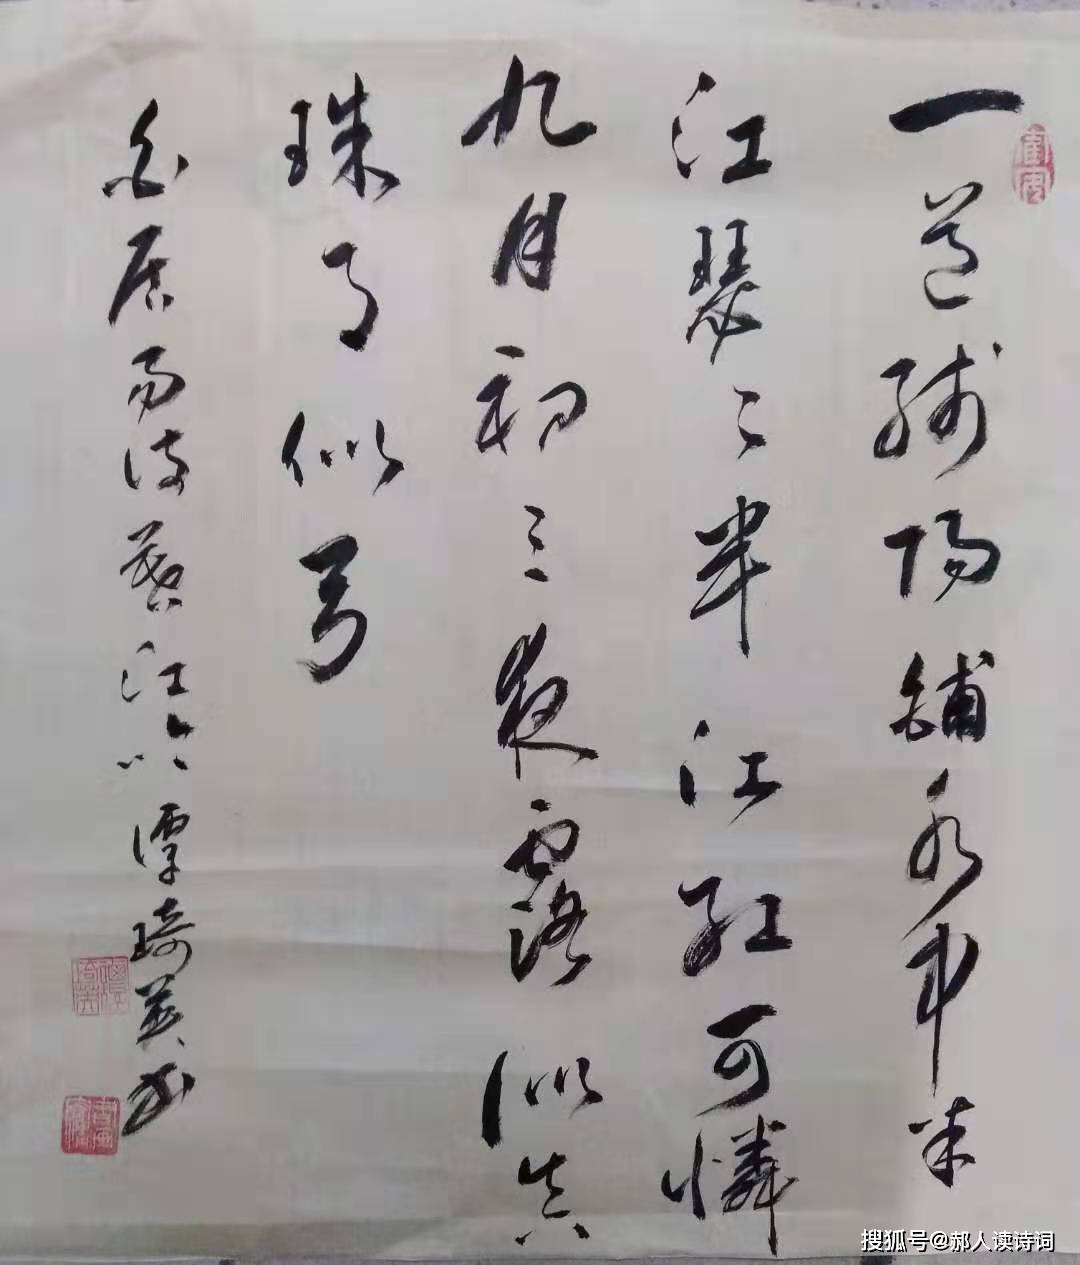 一道残陽鋪水中半
江瑟〻半江紅可憐
九月初三夜露似真
珠月似弓
白居易诗暮江吟 谭琦英书
搜狐号@郝人读诗词